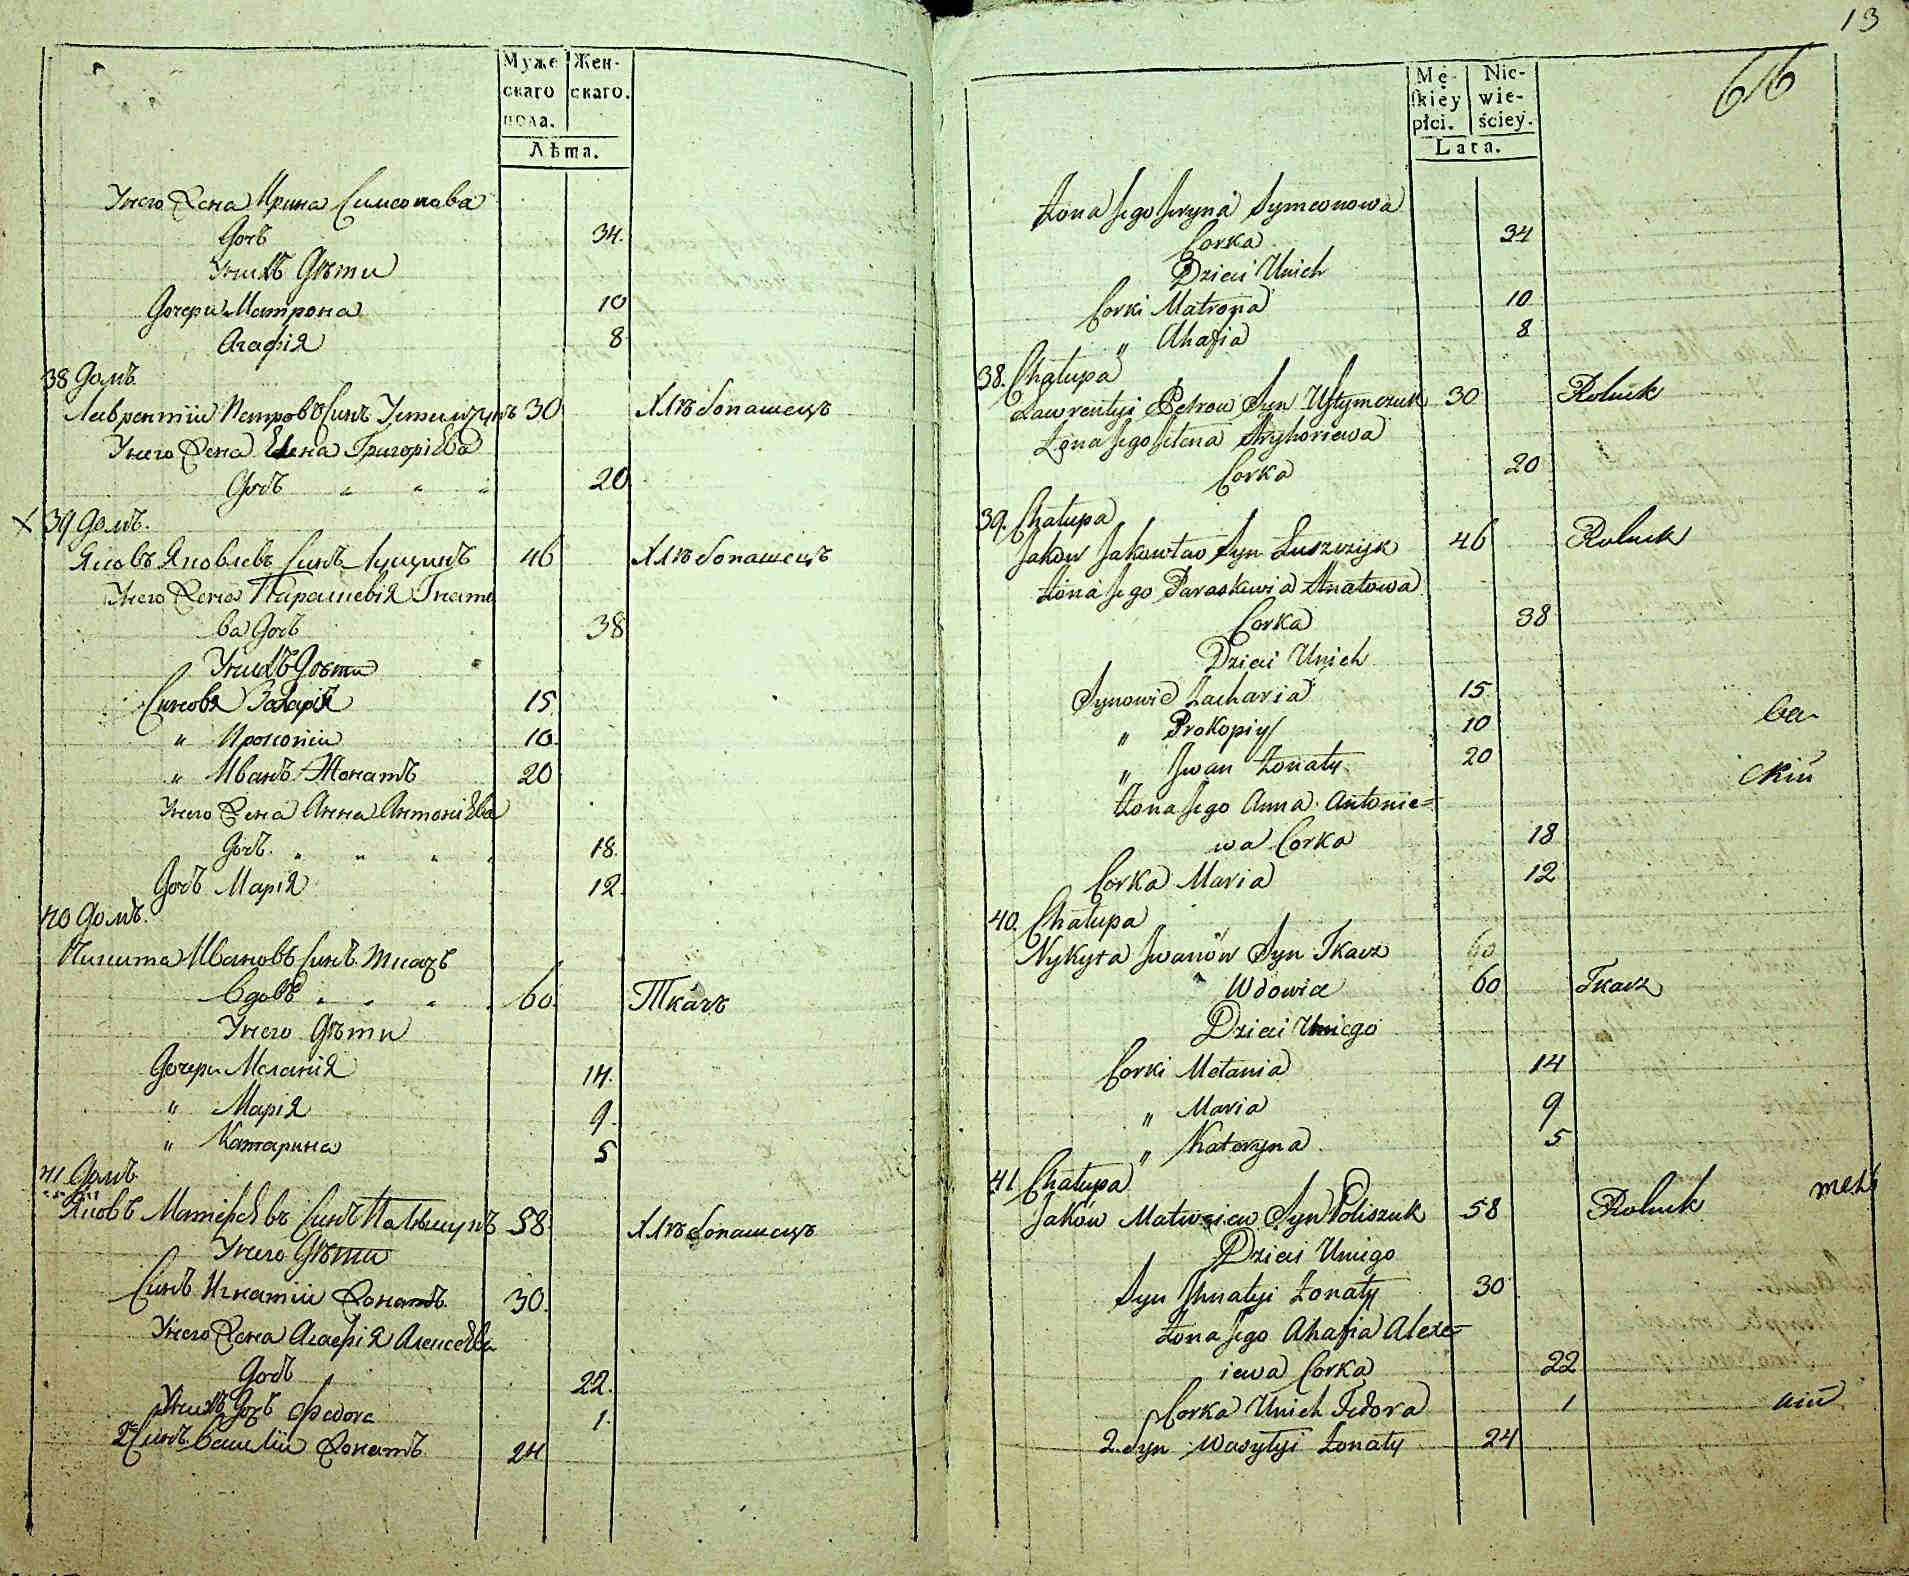 Муже Жен-
скаго скаго.
пола.
Лѣта.
Унего Жена Ирина Симеонова
Дочъ 34.
Унихъ Дѣти
Дочери Матрона 10
Агафія 8
38 Домъ
Лаврентіи Петровъ Синъ Устимчукъ 30 Хлѣбопашецъ
Унего Жена Елена Григоріева
Дочъ „ „ „ 20
X 39 Домъ.
Яковъ Яковлевъ Синъ Лущикъ 46 Хлѣбопашецъ
Унего Жена Параскевія Гнато
ва Дочъ 38
Унихъ Дѣти
Синовя Захарія 15
„ Прокопіи 10.
„ Иванъ Жонатъ 20
Унего Жена Анна Антоніева
Дочъ. „ „ „ „ 18.
Дочъ Марія 12.
40 Домъ.
Никита Ивановъ Синъ Ткачъ
Вдовъ „ „ „ „ 60. Ткачъ
Унего Дѣти
Дочери Меланія 14.
„ Марія 9.
„ Катарина 5
41 Домъ
Яковъ Матфѣевъ Синъ Полѣщукъ 58. Хлѣбопашецъ
Унего Дѣти
Синъ Игнатіи Жонатъ 30.
Унего Жена Агафія Алексѣева
Дочъ 22.
Унихъ Дочъ Федора 1.
2 Синъ Василіи Жонатъ 24
13
66
Mę- Nie-
skiéy wie-
płci. ściey.
Lata.
Żona Jego Jryna Symeonowa
Corka 34
Dzieci Unich
Corki Matrona 10
„ Ahafia 8
38. Chałupa
Ławrentyi Petrow Syn Ustymczuk 30 Rolnik
Żona Jego Jlena Hryhoriewa
Corka 20
39. Chałupa
Jakow Jakowlew Syn Łuszczyk 46 Rolnik
Żona Jego Paraskewia Hnatowa
Corka 38
Dzieci Unich
Synowie Zacharia 15
„ Prokopiy 10
ва-
„ Jwan Żonaty 20
скіи
Żona Jego Anna Antonie=
wa Corka 18
Corka Maria 12
40. Chałupa
Nykyta Jwanow Syn Tkacz 60
Wdowiec 60 Tkacz
Dzieci Uniego
Corki Mełania 14
„ Maria 9
„ Kateryna 5
41 Chałupa
Jakow Matwieiew Syn Poliszuk 58 Rolnik
тель
Dzieci Uniego
Syn Hnatyi Żonaty 30
Żona Jego Ahafia Alexe=
iewa Corka 22
Corka Unich Fedora 1
2. Syn Wasylyi Żonaty 24